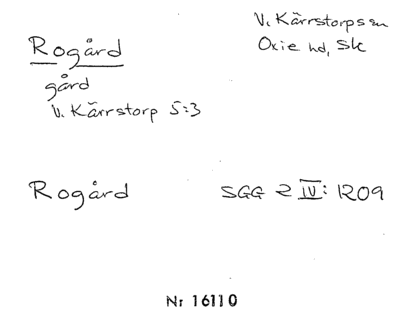 Rogård
V. Kärrstorps sn
Oxie hd, Sk
gård
V. Kärrstorp 5:3
Rogård
SGG 2 IV: 1209
Nr 16110